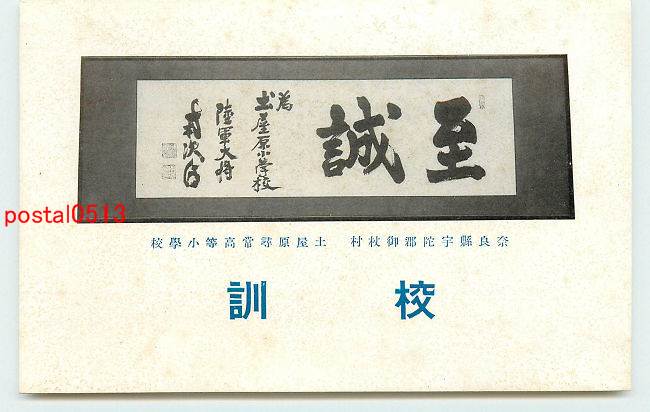 至誠
為
土屋原小学校
陸軍大将
奈良縣宇陀郡御杖村 土屋原尋常高等小學校
校訓
postal0513